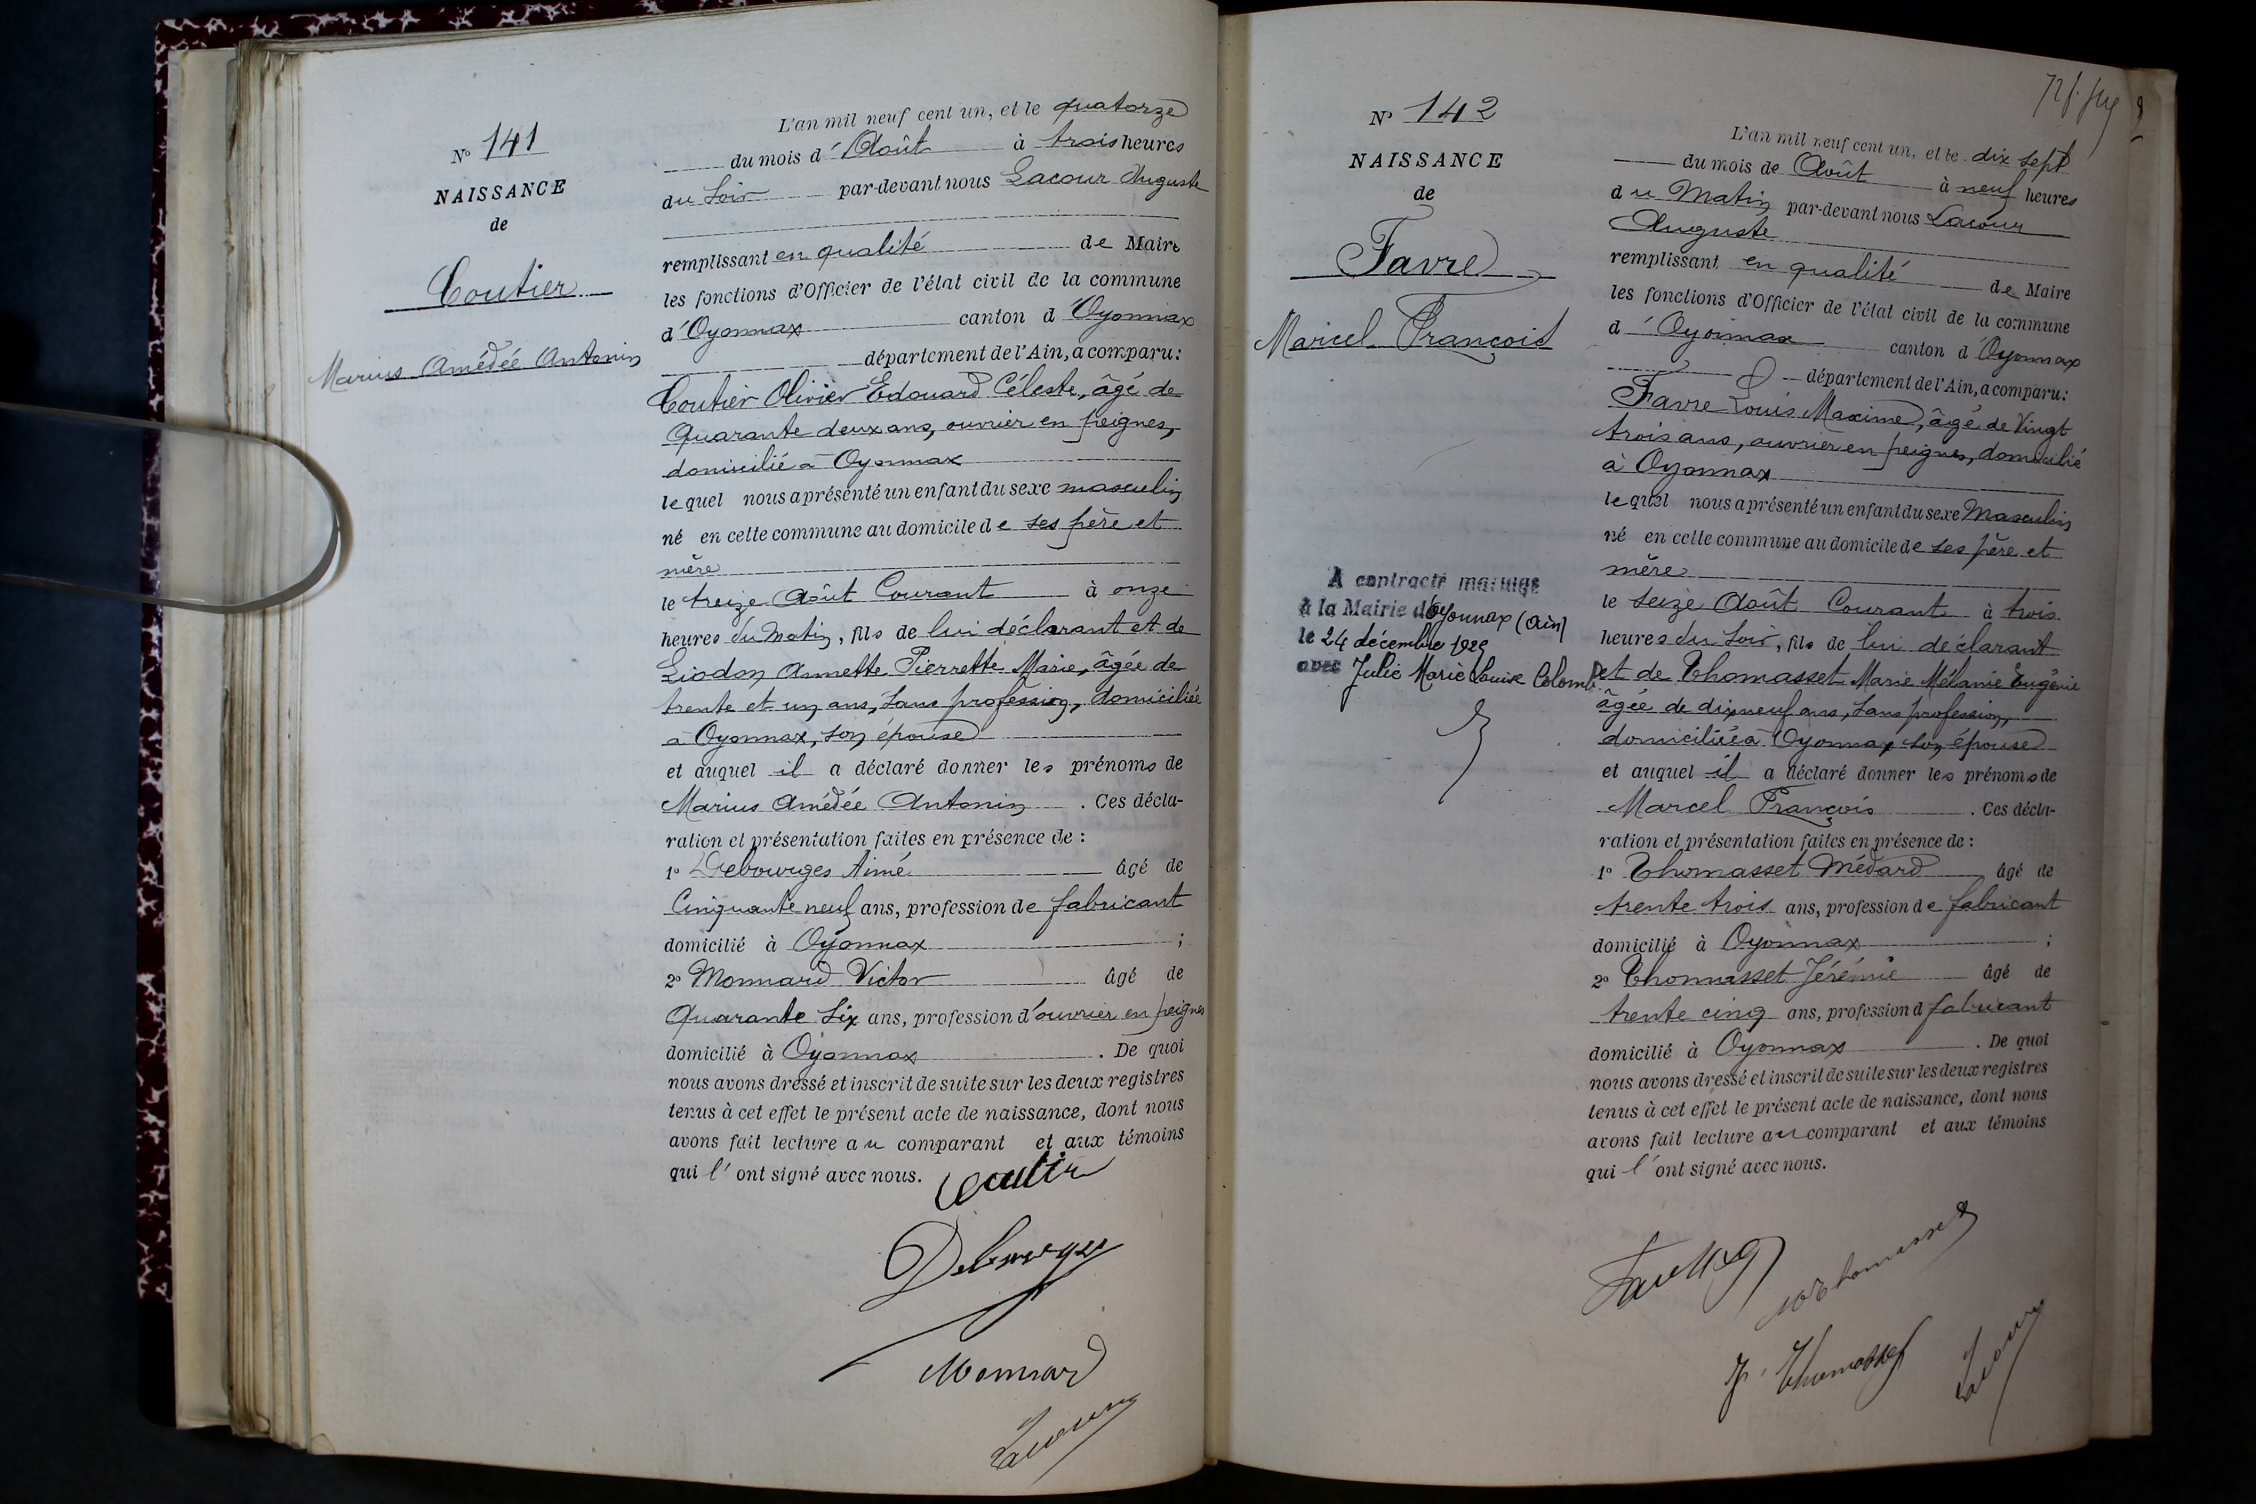 N° 141
NAISSANCE
de
Coutier
Marius Amédée Antonin
L'an mil neuf cent un, et le quatorze
du mois d'Août à trois heures
du Soir par-devant nous Lacour Auguste
remplissant en qualité de Maire
les fonctions d'Officier de l'état civil de la commune
d'Oyonnax canton d'Oyonnax
département de l'Ain, a comparu:
Coutier Olivier Edouard Céleste, âgé de
Quarante deux ans, ouvrier en peignes,
domicilié à Oyonnax
lequel nous a présenté un enfant du sexe masculin
né en cette commune au domicile de ses père et
mère
le treize Août Courant à onze
heures du Matin, fils de lui déclarant et de
Liodon Annette Pierrette Marie, âgée de
trente et un ans, sans profession, domiciliée
à Oyonnax, son épouse
et auquel il a déclaré donner les prénoms de
Marius Amédée Antonin. Ces décla-
ration et présentation faites en présence de :
1° Debourges Aimé âgé de
Cinquante neuf ans, profession de fabricant
domicilié à Oyonnax ;
2° Monnard Victor âgé de
Quarante Six ans, profession d'ouvrier en peignes
domicilié à Oyonnax. De quoi
nous avons dressé et inscrit de suite sur les deux registres
tenus à cet effet le présent acte de naissance, dont nous
avons fait lecture au comparant et aux témoins
qui l'ont signé avec nous.
Coutier
Debourges
Monnard
Lacour
N° 142
NAISSANCE
de
Favre
Marcel François
A contracté mariage
à la Mairie d'Oyonnax (Ain)
le 24 décembre 1929
avec Julie Marie Louise Colomb
L'an mil neuf cent un, et le dix sept
du mois de Août à neuf heures
du Matin par-devant nous Lacour
Auguste
remplissant en qualité de Maire
les fonctions d'Officier de l'état civil de la commune
d'Oyonnax canton d'Oyonnax
département de l'Ain, a comparu:
Favre Louis Maxime, âgé de Vingt
trois ans, ouvrier en peignes, domicilié
à Oyonnax
lequel nous a présenté un enfant du sexe Masculin
né en cette commune au domicile de ses père et
mère
le seize Août Courant à trois
heures du Soir, fils de lui déclarant
et de Thomasset Marie Mélanie Eugénie
âgée de dix neuf ans, sans profession,
domiciliée à Oyonnax son épouse
et auquel il a déclaré donner les prénoms de
Marcel François. Ces décla-
ration et présentation faites en présence de :
1° Thomasset Médard âgé de
trente trois ans, profession de fabricant
domicilié à Oyonnax ;
2° Thomasset Jérémie âgé de
trente cinq ans, profession d fabricant
domicilié à Oyonnax. De quoi
nous avons dressé et inscrit de suite sur les deux registres
tenus à cet effet le présent acte de naissance, dont nous
avons fait lecture au comparant et aux témoins
qui l'ont signé avec nous.
Thomasset
J. Thomasset
Lacour